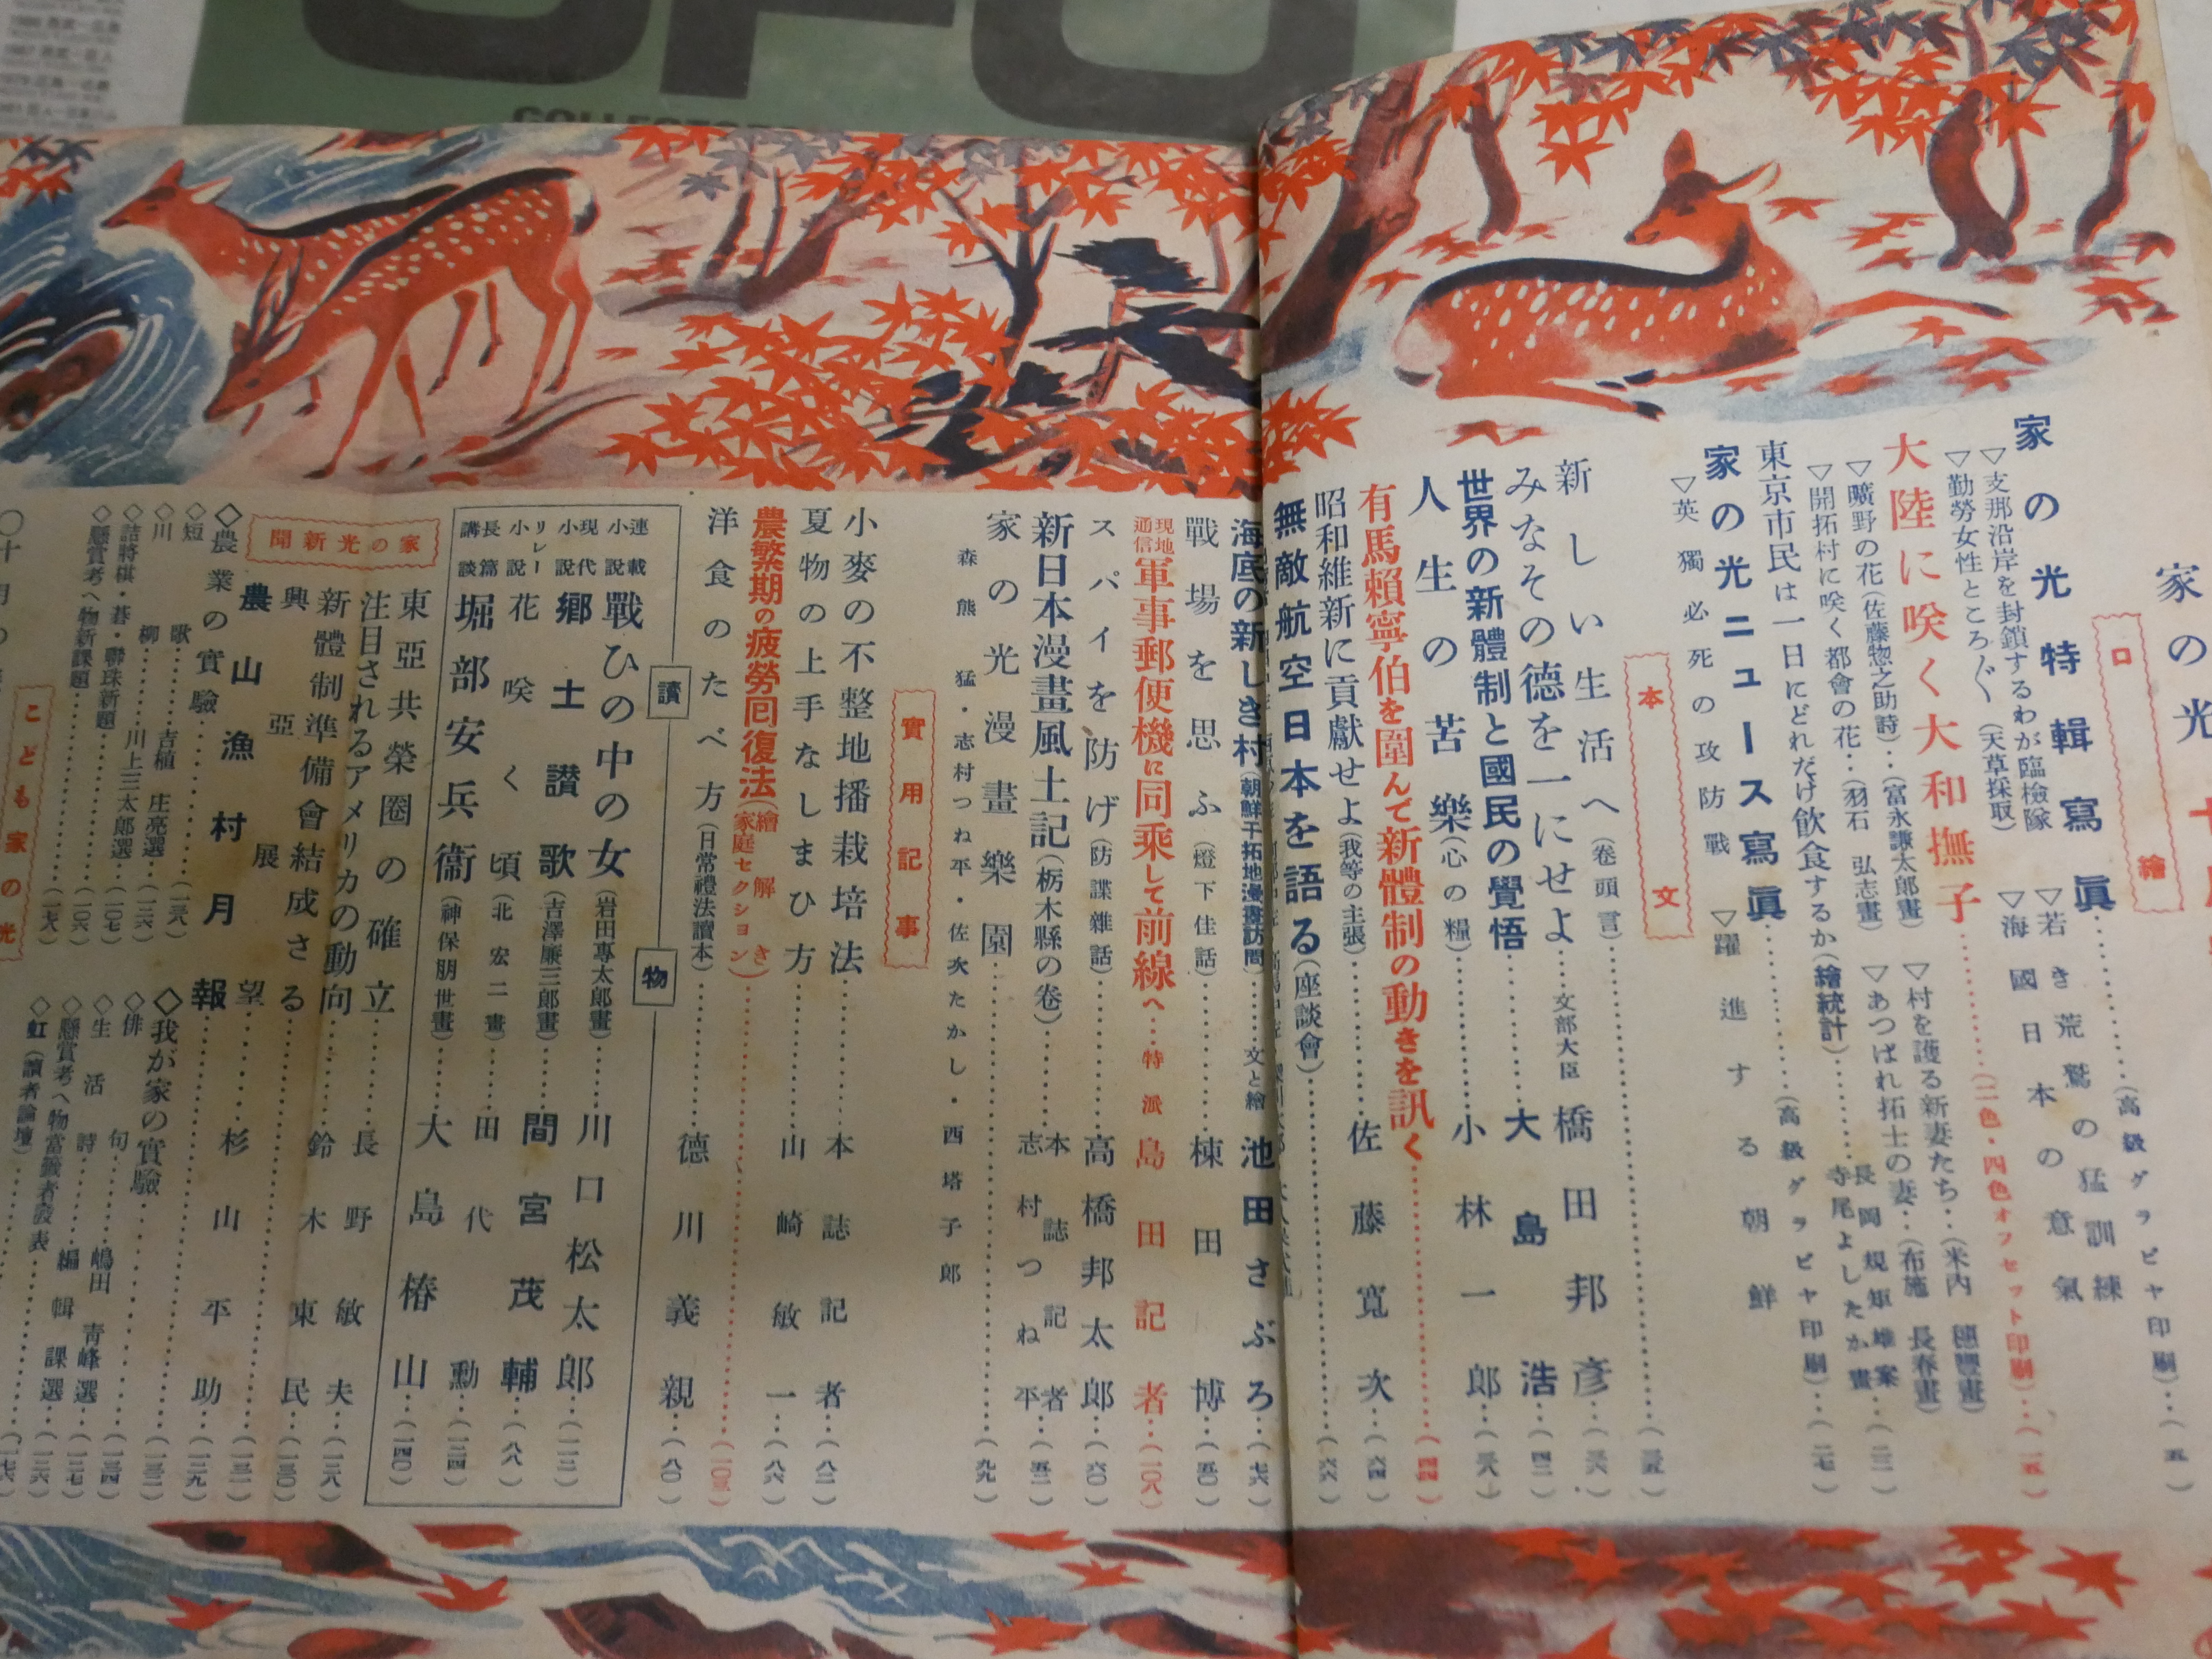 口繪
家の光特輯寫眞……(高級グラビヤ印刷)…(五)
▽支那沿岸を封鎖するわが臨檢隊
▽若き荒鷲の猛訓練
▽勤勞女性ところ〴〵(天草採取)
▽海國日本の意氣
大陸に咲く大和撫子……(二色・四色オフセット印刷)…(一五)
▽曠野の花(佐藤惣之助詩)‥(富永謙太郎畫)
▽村を護る新妻たち‥(米内 穗豐畫)
▽開拓村に咲く都會の花‥(羽石 弘志畫)
▽あつぱれ拓士の妻‥(布施 長春畫)
東京市民は一日にどれだけ飮食するか(繪統計)……長岡規矩雄案 寺尾よしたか畫…(二三)
家の光ニュース寫眞……(高級グラビヤ印刷)…(二七)
▽英獨必死の攻防戰
▽躍進する朝鮮
本文
新しい生活へ(卷頭言)……(三五)
みなその德を一にせよ……文部大臣 橋田邦彥…(三六)
世界の新體制と國民の覺悟……大島 浩…(四二)
人生の苦樂(心の糧)……小林一郎…(三八)
有馬賴寧伯を圍んで新體制の動きを訊く……(四四)
昭和維新に貢獻せよ(我等の主張)……佐藤寬次…(六四)
無敵航空日本を語る(座談會)……(六六)
海底の新しき村(朝鮮干拓地漫畫訪問)……文と繪 池田さぶろ…(七六)
戰場を思ふ(燈下佳話)……棟田 博…(五〇)
現地通信 軍事郵便機に同乘して前線へ…特派 島田記者…(一〇八)
スパイを防げ(防諜雜話)……高橋邦太郎…(六〇)
新日本漫畫風土記(栃木縣の卷)……本誌記者 志村つね平…(五二)
家の光漫畫樂園……(九九)
森熊 猛・志村つね平・佐次たかし・西塔子郎
實用記事
小麥の不整地播栽培法……本誌記者…(八二)
夏物の上手なしまひ方……山崎敏一…(八六)
農繁期の疲勞囘復法(繪解き 家庭セクション)……(一〇三)
洋食のたべ方(日常禮法讀本)……德川義親…(八〇)
讀物
連載小說 戰ひの中の女(岩田專太郎畫)……川口松太郎…(一一二)
現代小說 鄕土讃歌(吉澤廉三郎畫)……間宮茂輔…(八八)
リレー小說 花咲く頃(北 宏二畫)……田代 勳…(一二四)
長篇講談 堀部安兵衞(神保朋世畫)……大島椿山…(一四〇)
家の光新聞
東亞共榮圈の確立……長野敏夫…(一二八)
注目されるアメリカの動向……鈴木東民…(一三〇)
新體制準備會結成さる
興亞展望……(一三一)
農山漁村月報……杉山平助…(一二九)
◇農業の實驗……(一三八)
◇我が家の實驗……(一三二)
◇短歌……吉植 庄亮選…(一三六)
◇俳句……嶋田 靑峰選…(一三四)
◇川柳……川上三太郎選…(一〇七)
◇生活詩……編輯課選…(一三七)
◇詰將棋・碁・聯珠新題……(一〇六)
◇懸賞考へ物當籤者發表……(一三六)
◇懸賞考へ物新課題……(一六)
◇虹(讀者論壇)……(一七六)
こども家の光
COLLECTOR